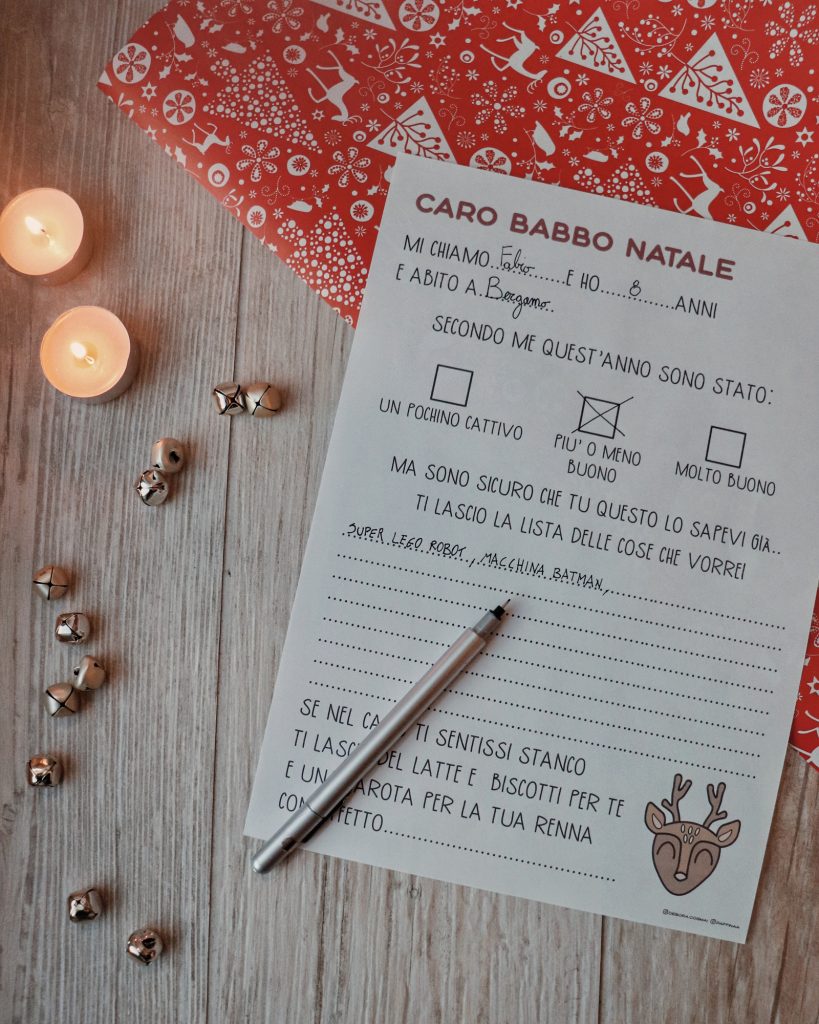 CARO BABBO NATALE
MI CHIAMO..Fabio......E HO....8......ANNI
E ABITO A.Bergamo..
SECONDO ME QUEST'ANNO SONO STATO:
UN POCHINO CATTIVO
PIU' O MENO
BUONO
MOLTO BUONO
MA SONO SICURO CHE TU QUESTO LO SAPEVI GIA..
TI LASCIO LA LISTA DELLE COSE CHE VORREI
SUPER LEGO ROBOT, MACCHINA BATMAN,
SE NEL TI SENTISSI STANCO
TI DEL LATTE E BISCOTTI PER TE
E PER LA TUA RENNA
@DEBORA.COSMAI